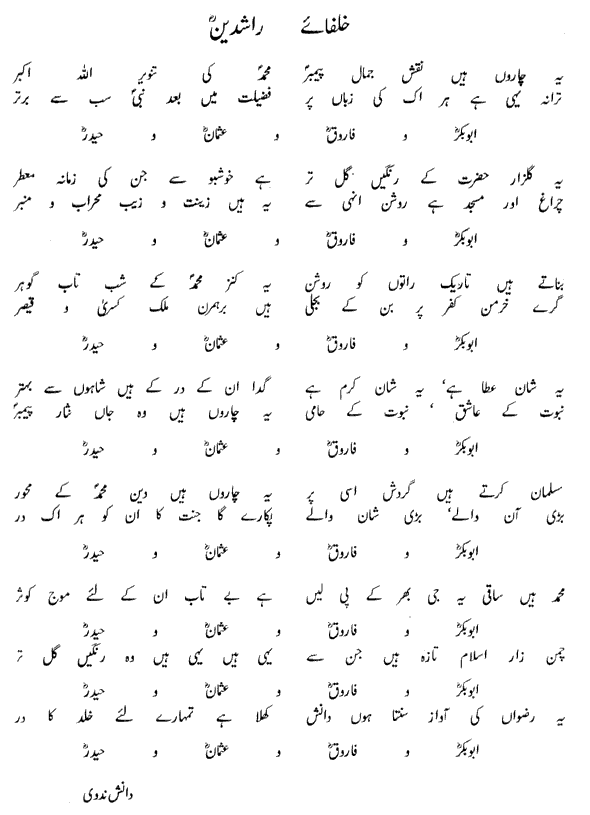 خلفائے راشدینؓ
یہ چاروں ہیں نقش جمال پیمبرؐ محمدؐ کی تنویر اللہ اکبر
ترانہ یہی ہے ہر اک کی زباں پر فضیلت میں بعد نبیؐ سب سے برتر
ابوبکرؓ و فاروقؓ و عثمانؓ و حیدرؓ
یہ گلزار حضرت کے رنگیں گل تر ہے خوشبو سے جن کی زمانہ معطر
چراغ اور مسجد ہے روشن انہی سے یہ ہیں زینت و زیب محراب و منبر
ابوبکرؓ و فاروقؓ و عثمانؓ و حیدرؓ
بناتے ہیں تاریک راتوں کو روشن یہ کنز محمدؐ کے شب تاب گوہر
گرے خرمن کفر پر بن کے بجلی ہیں برہمزن ملک کسریٰ و قیصر
ابوبکرؓ و فاروقؓ و عثمانؓ و حیدرؓ
یہ شان عطا ہے‘ یہ شان کرم ہے گدا ان کے در کے ہیں شاہوں سے بہتر
نبوت کے عاشق ‘ نبوت کے حامی یہ چاروں ہیں وہ جاں نثار پیمبرؐ
ابوبکرؓ و فاروقؓ و عثمانؓ و حیدرؓ
مسلمان کرتے ہیں گردش اسی پر یہ چاروں ہیں دین محمدؐ کے محور
بڑی آن والے‘ بڑی شان والے پکارے گا جنت کا ان کو ہر اک در
ابوبکرؓ و فاروقؓ و عثمانؓ و حیدرؓ
محمد ہیں ساقی یہ جی بھر کے پی لیں ہے بے تاب ان کے لئے موج کوثر
ابوبکرؓ و فاروقؓ و عثمانؓ و حیدرؓ
چمن زار اسلام تازہ ہیں جن سے یہی ہیں یہی ہیں وہ رنگیں گل تر
ابوبکرؓ و فاروقؓ و عثمانؓ و حیدرؓ
یہ رضواں کی آواز سنتا ہوں دانش کھلا ہے تمہارے لئے خلد کا در
ابوبکرؓ و فاروقؓ و عثمانؓ و حیدرؓ
دانش ندوی